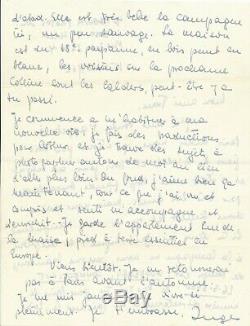 d'abord. Elle est très belle la campagne
ici, un peu sauvage. La maison
est du 18è paysanne, en bois peint en
blanc, les voisins sur la prochaine
colline sont les Calders, peut-être y a
tu passé.
Je commence à m'habituer à ma
nouvelle vie, je fais des traductions
pour Arthur, et j'ai trouvé des sujets à
photographier autour de moi au lieu
d'aller plus loin. Au fond, j'aime bien ça
maintenant, tout ce que j'ai vu et
compris et senti m'accompagne et
s'enrichit. Je garde l'appartement rue de
la Chaise, pied à terre essentiel en
Europe.
Viens bientôt. Je ne retournerai
pas à Paris avant l'automne.
Je me suis
pleinement. Je t'embrasse. Inge